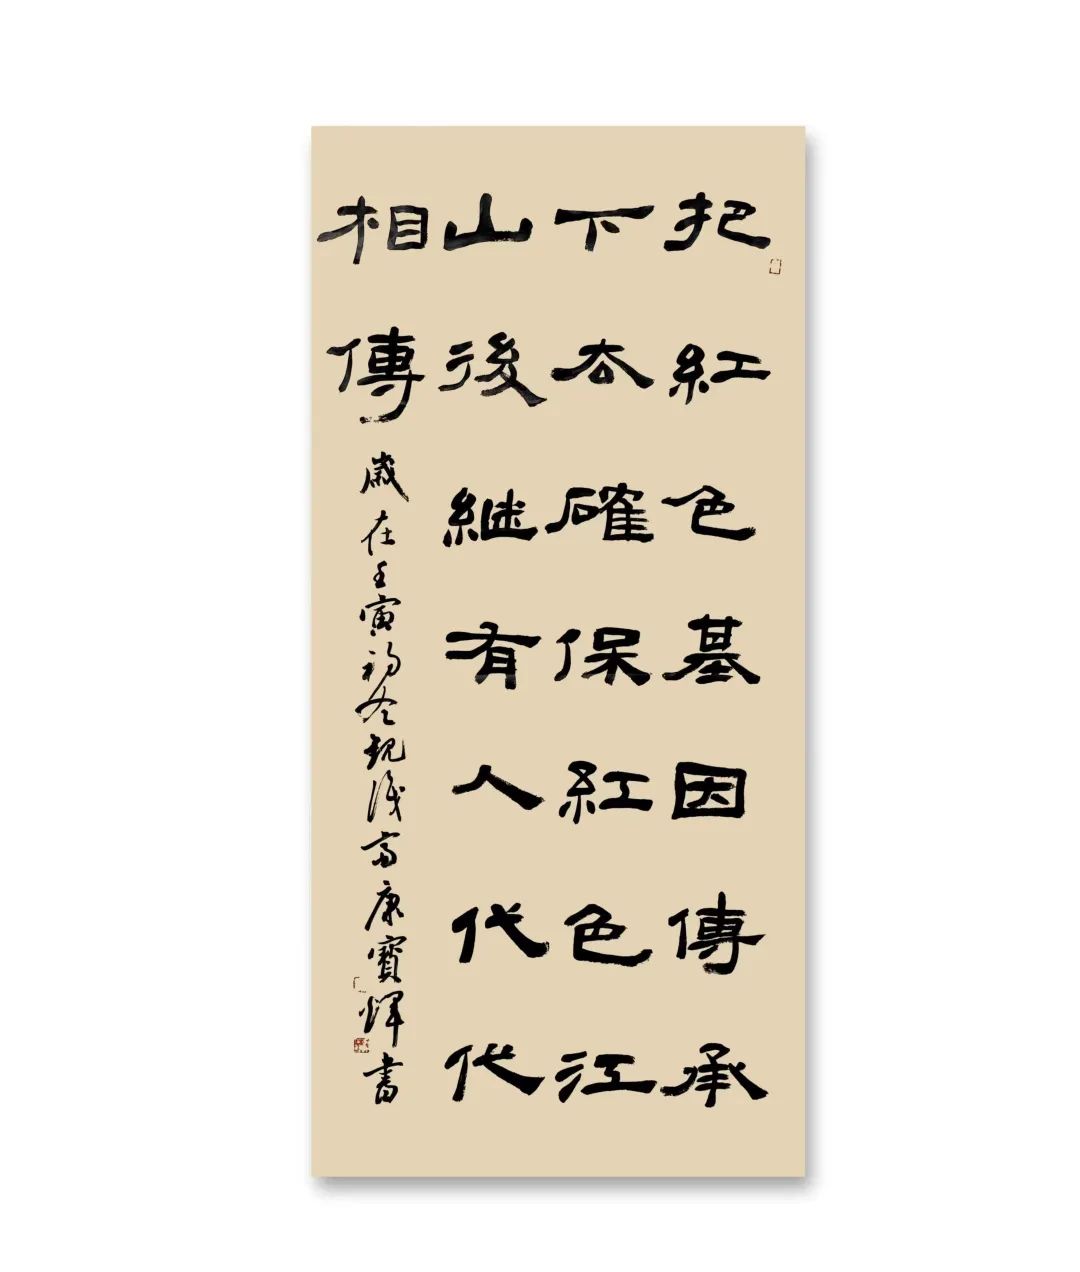 把紅色基因傳承
下去確保紅色江
山後継有人代代
相傳
歲在壬寅初冬 齋康寶煇書